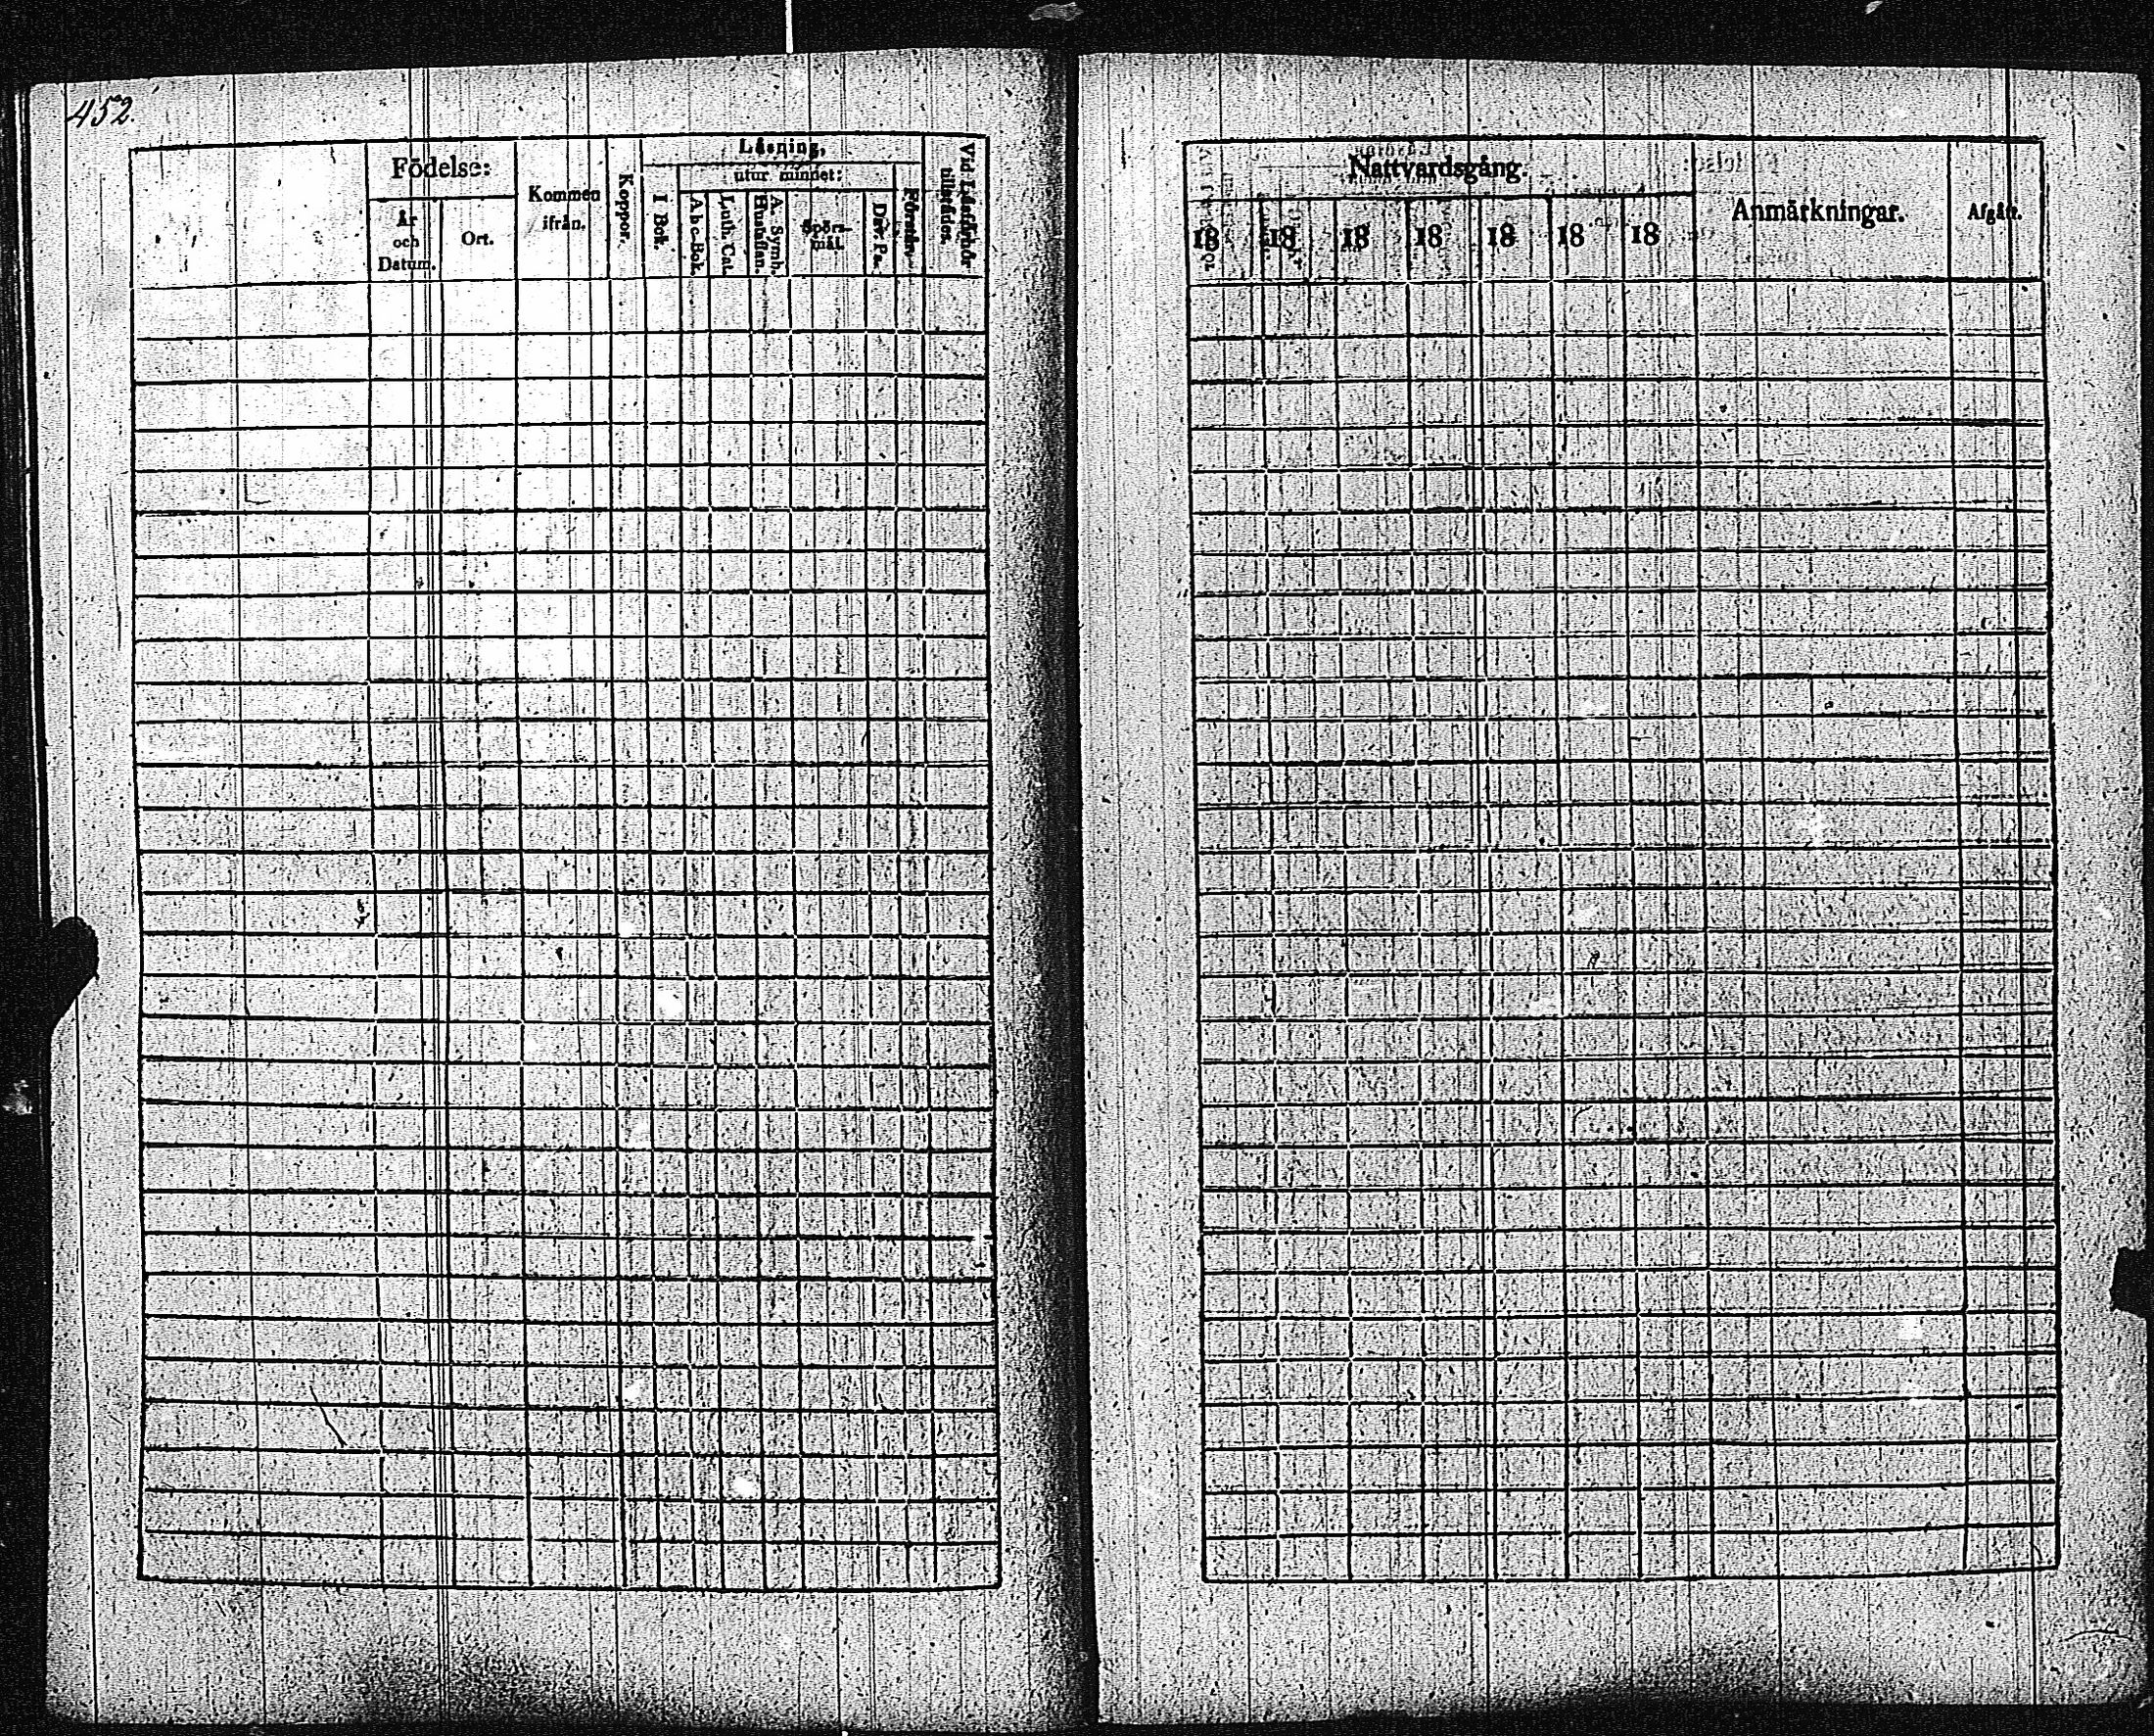 452.
Födelse:
År
och
Datum.
Ort.
Kommen
ifrån.
Koppor.
Läsning,
utur minnet:
I Bok.
Abc-Bok.
Luth. Cat.
A. Symb.
Hustaflan.
Spörs-
mål.
Dav. Ps.
Vid Läsförhör
tillstädes.
Nattvardsgång.
18 18 18 18 18 18 18
Anmärkningar.
Afgått.